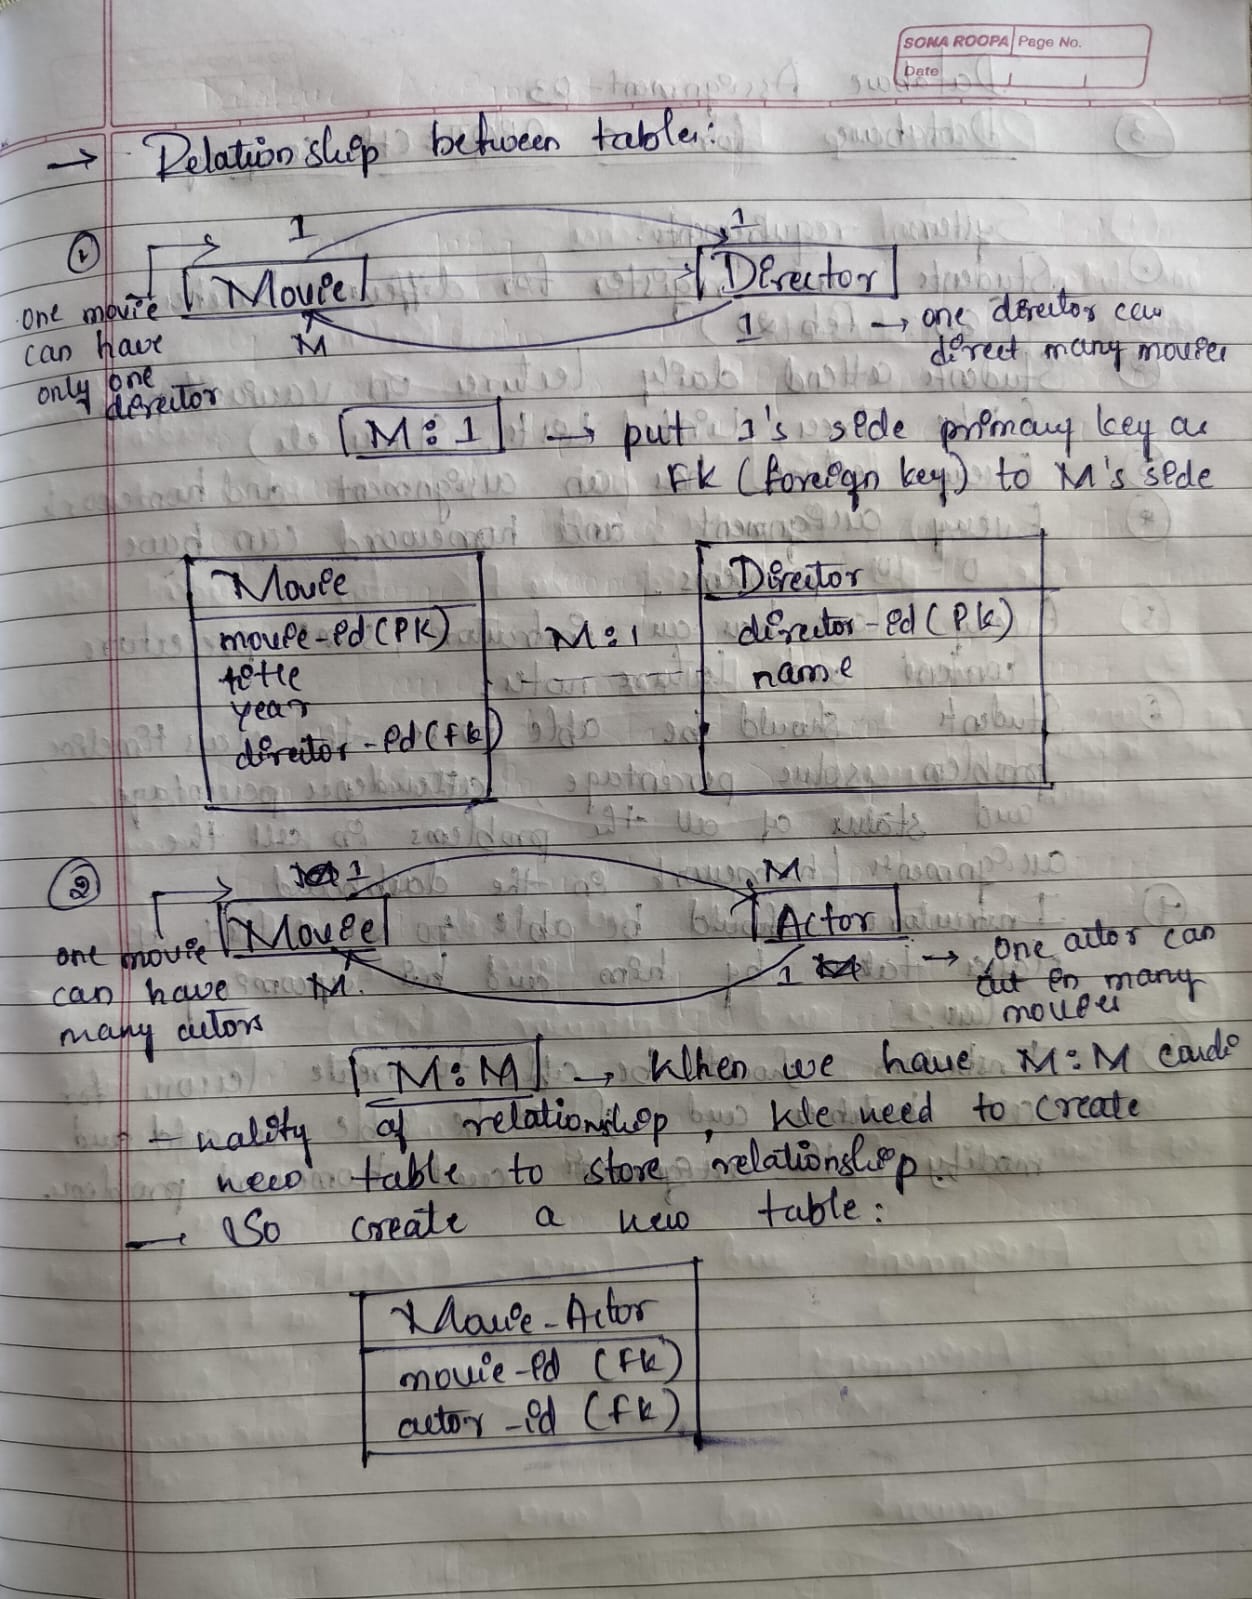 SONA ROOPA Page No.
Date
→ Relationship between tables:
① 1 1
Movie Director
one movie can have only one director
M 1 → one director can direct many movies
M:1 → put 1's side primary key as
FK (foreign key) to M's side
Movie
movie-id (PK)
title
year
director-id (FK)
M:1
Director
director-id (PK)
name
② 1 M
Movie Actor
one movie
can have
many actors
M 1 → One actor can
act in many
movies
M:M → When we have M:M cardi
- nality of relationship, We need to create
new table to store relationship.
→ So create a new table:
Movie-Actor
movie-id (FK)
actor-id (FK)